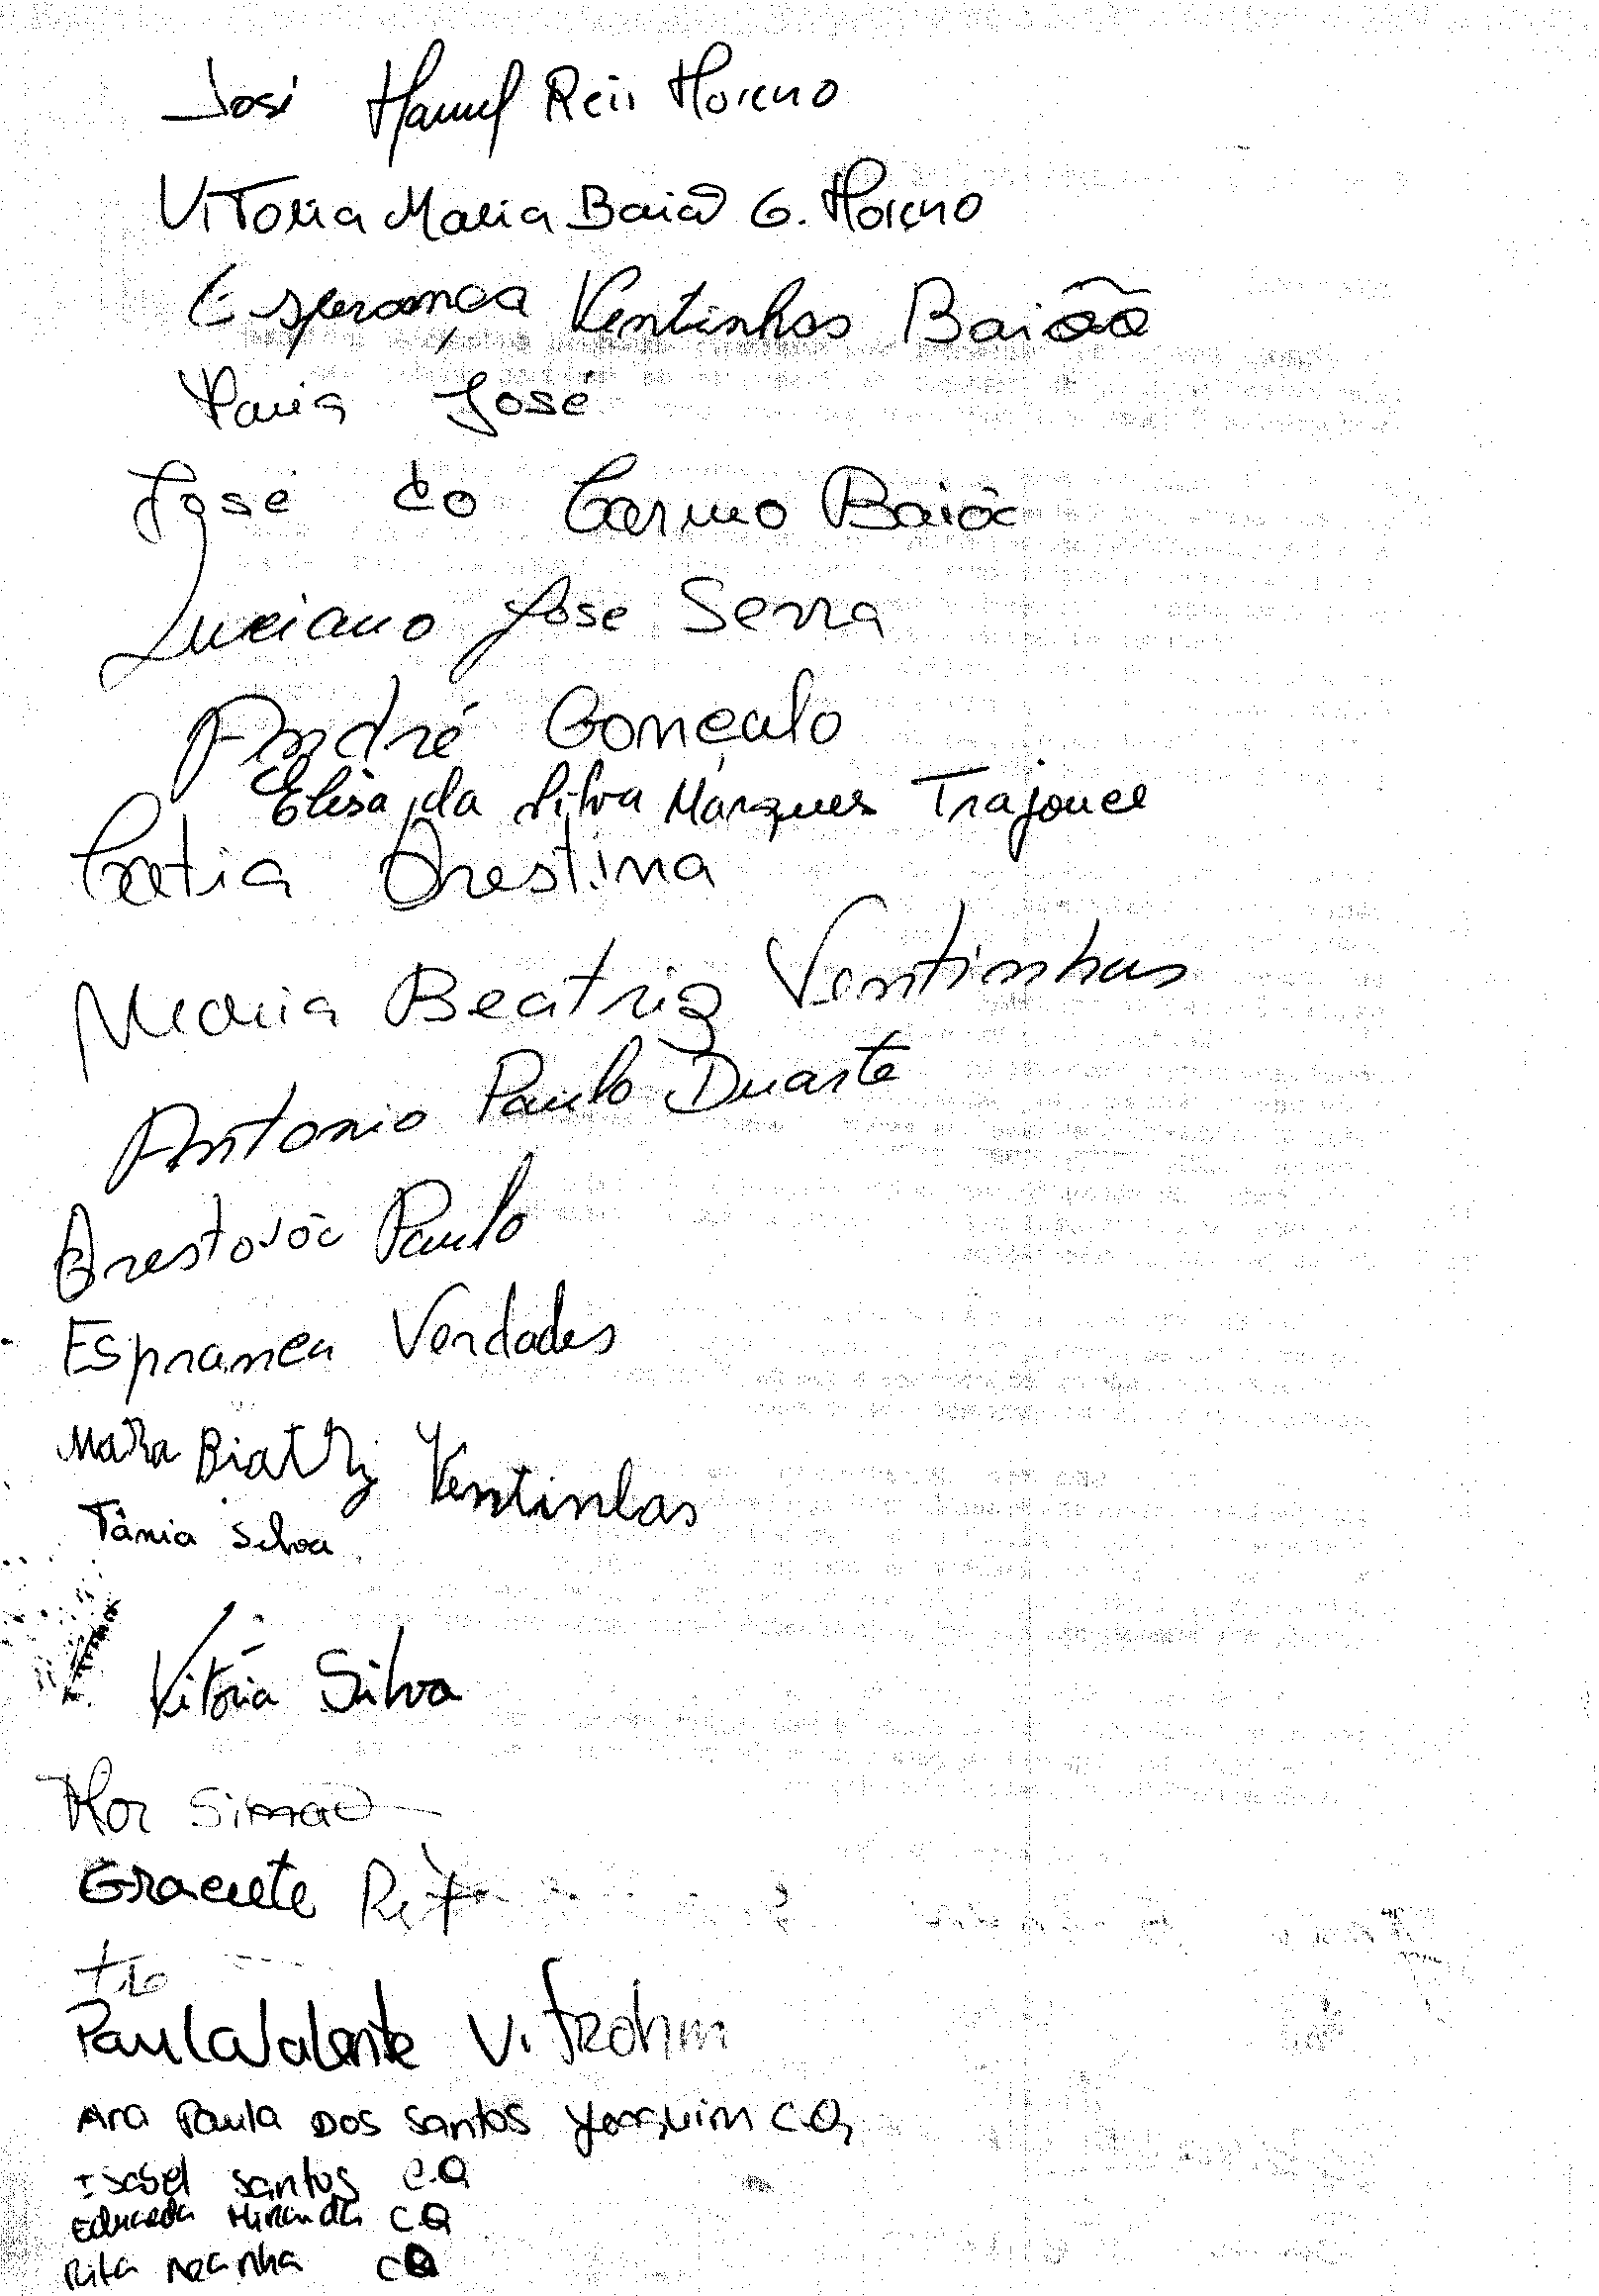 José Manuel Reis Moreno
Vitoria Maria Baião G. Moreno
Esperança Ventinhas Baião
Maria José
José do Carmo Baião
Luciano Jose Serra
André Gonçalo
Elisa da Silva Marques Trajouce
Catia Orestina
Maria Beatriz Ventinhas
Antonio Paulo Duarte
Paulo
Esperamea Verdades
Maria Biatriz Ventinhas
Tânia Silva
Vitória Silva
Flor Simão
Graciete
Paula Valente V. Frohm
Ana Paula Dos Santos Joaquim CQ
Isabel Santos C.Q
Eduarda Miranda CQ
Rita CQ